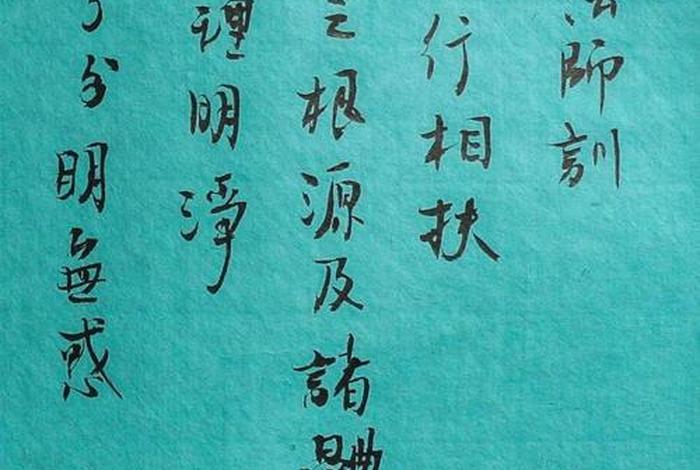 法師訓
行相扶
之根源及諸體
理明淨
了分明無惑